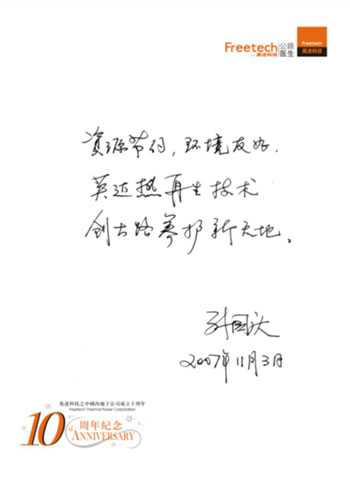 Freetech 公路医生
英达科技
Freetech
英达科技
资源节约,环境友好.
英达热再生技术
创公路养护新天地。
2007年11月3日
英達科技之中國內地子公司成立十周年
Freetech Thermal Power Corporation
10 周年纪念
ANNIVERSARY